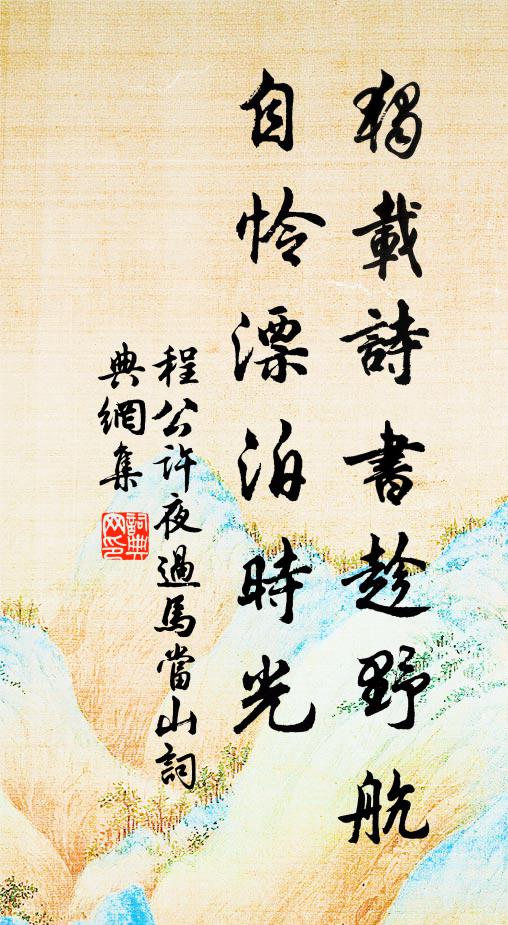 獨載詩書趁野航
自怜漂泊時光
程公許夜過馬當山詞
典網集
詞典
网印